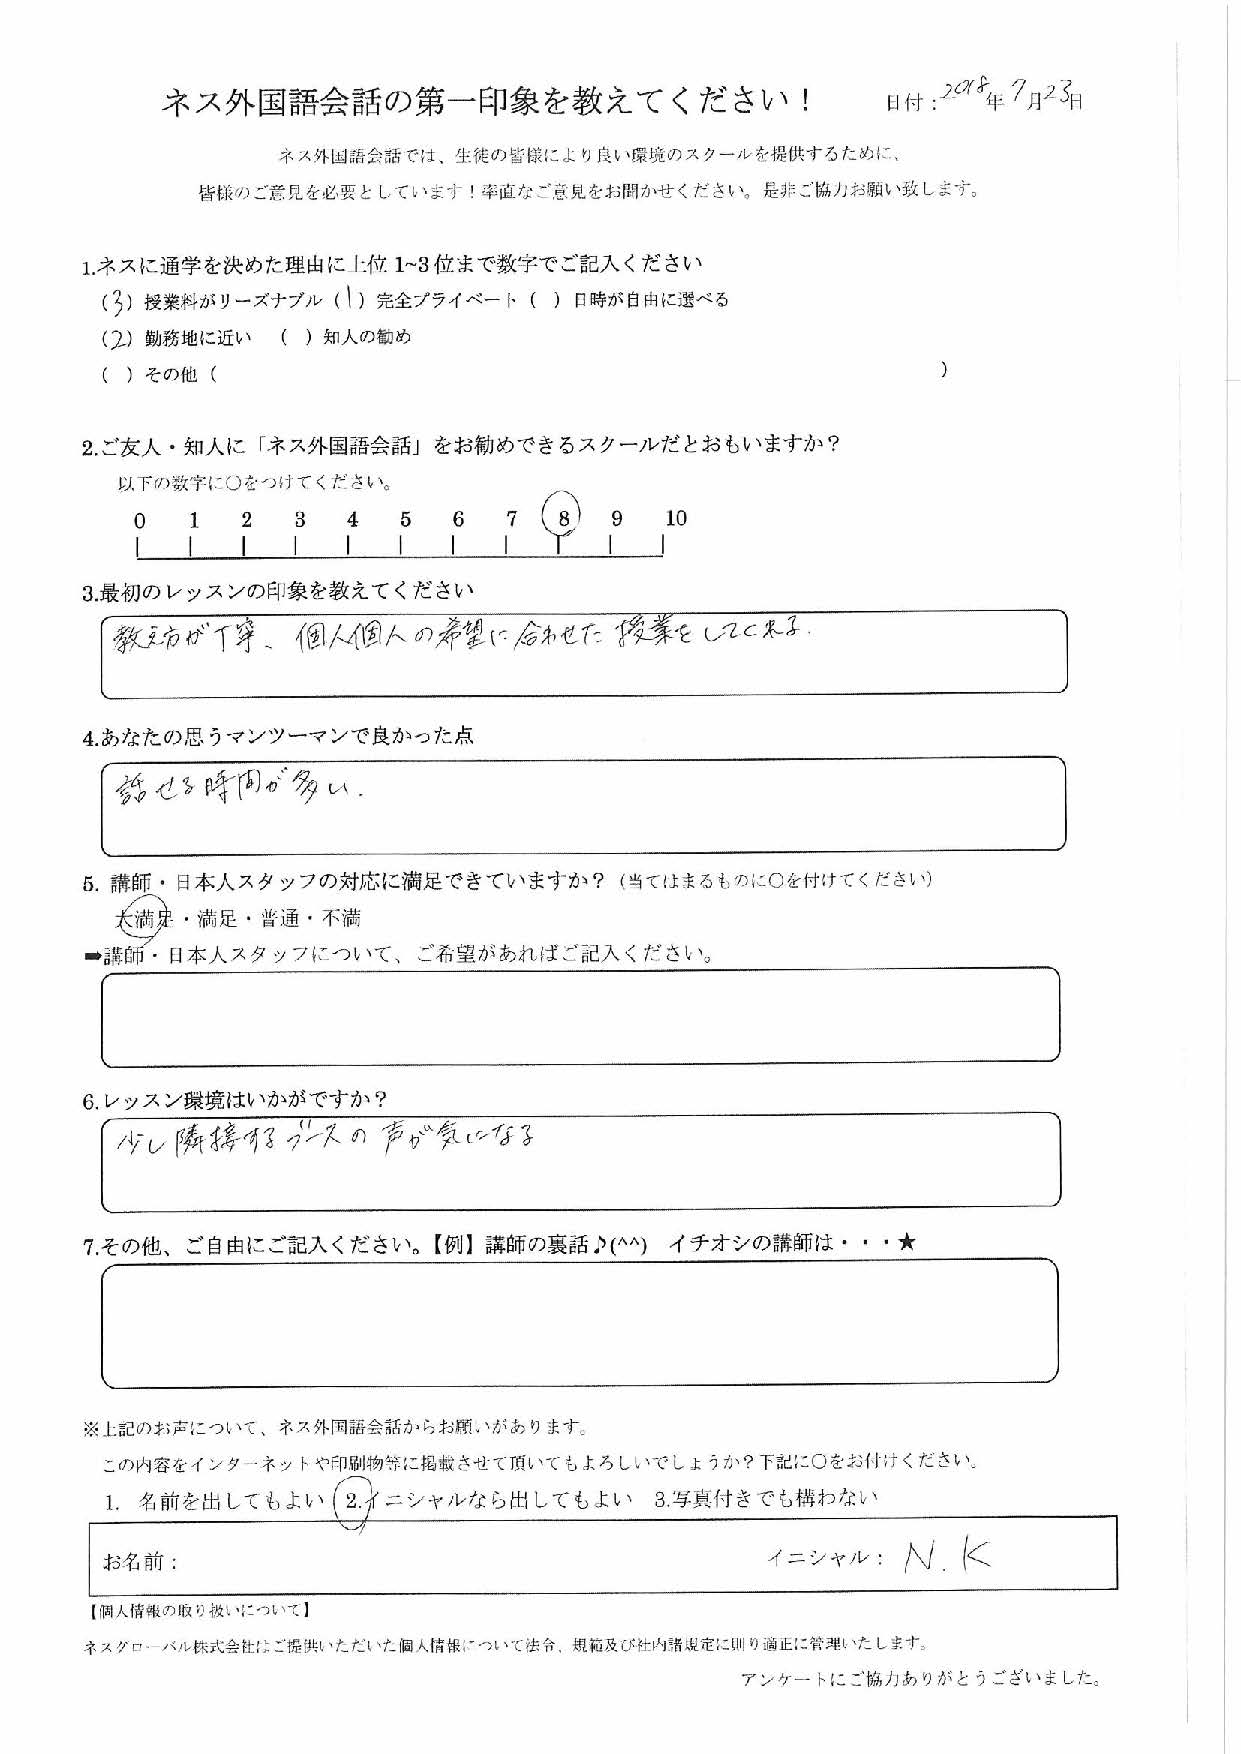 ネス外国語会話の第一印象を教えてください！ 日付：2018年7月23日
ネス外国語会話では、生徒の皆様により良い環境のスクールを提供するために、
皆様のご意見を必要としています！率直なご意見をお聞かせください。是非ご協力お願い致します。
1.ネスに通学を決めた理由に上位1~3位まで数字でご記入ください
（3）授業料がリーズナブル（1）完全プライベート（ ）日時が自由に選べる
（2）勤務地に近い （ ）知人の勧め
（ ）その他（ ）
2.ご友人・知人に「ネス外国語会話」をお勧めできるスクールだとおもいますか？
以下の数字に〇をつけてください。
0 1 2 3 4 5 6 7 8 9 10
3.最初のレッスンの印象を教えてください
教え方が丁寧、個人個人の希望に合わせた授業をしてく来る.
4.あなたの思うマンツーマンで良かった点
話せる時間が多い.
5. 講師・日本人スタッフの対応に満足できていますか？（当てはまるものに〇を付けてください）
大満足・満足・普通・不満
➡講師・日本人スタッフについて、ご希望があればご記入ください。
6.レッスン環境はいかがですか？
少し隣接するブースの声が気になる
7.その他、ご自由にご記入ください。【例】講師の裏話♪(^^) イチオシの講師は・・・★
※上記のお声について、ネス外国語会話からお願いがあります。
この内容をインターネットや印刷物等に掲載させて頂いてもよろしいでしょうか？下記に〇をお付けください。
1. 名前を出してもよい 2.イニシャルなら出してもよい 3.写真付きでも構わない
お名前： イニシャル： N.K
【個人情報の取り扱いについて】
ネスグローバル株式会社はご提供いただいた個人情報について法令、規範及び社内諸規定に則り適正に管理いたします。
アンケートにご協力ありがとうございました。